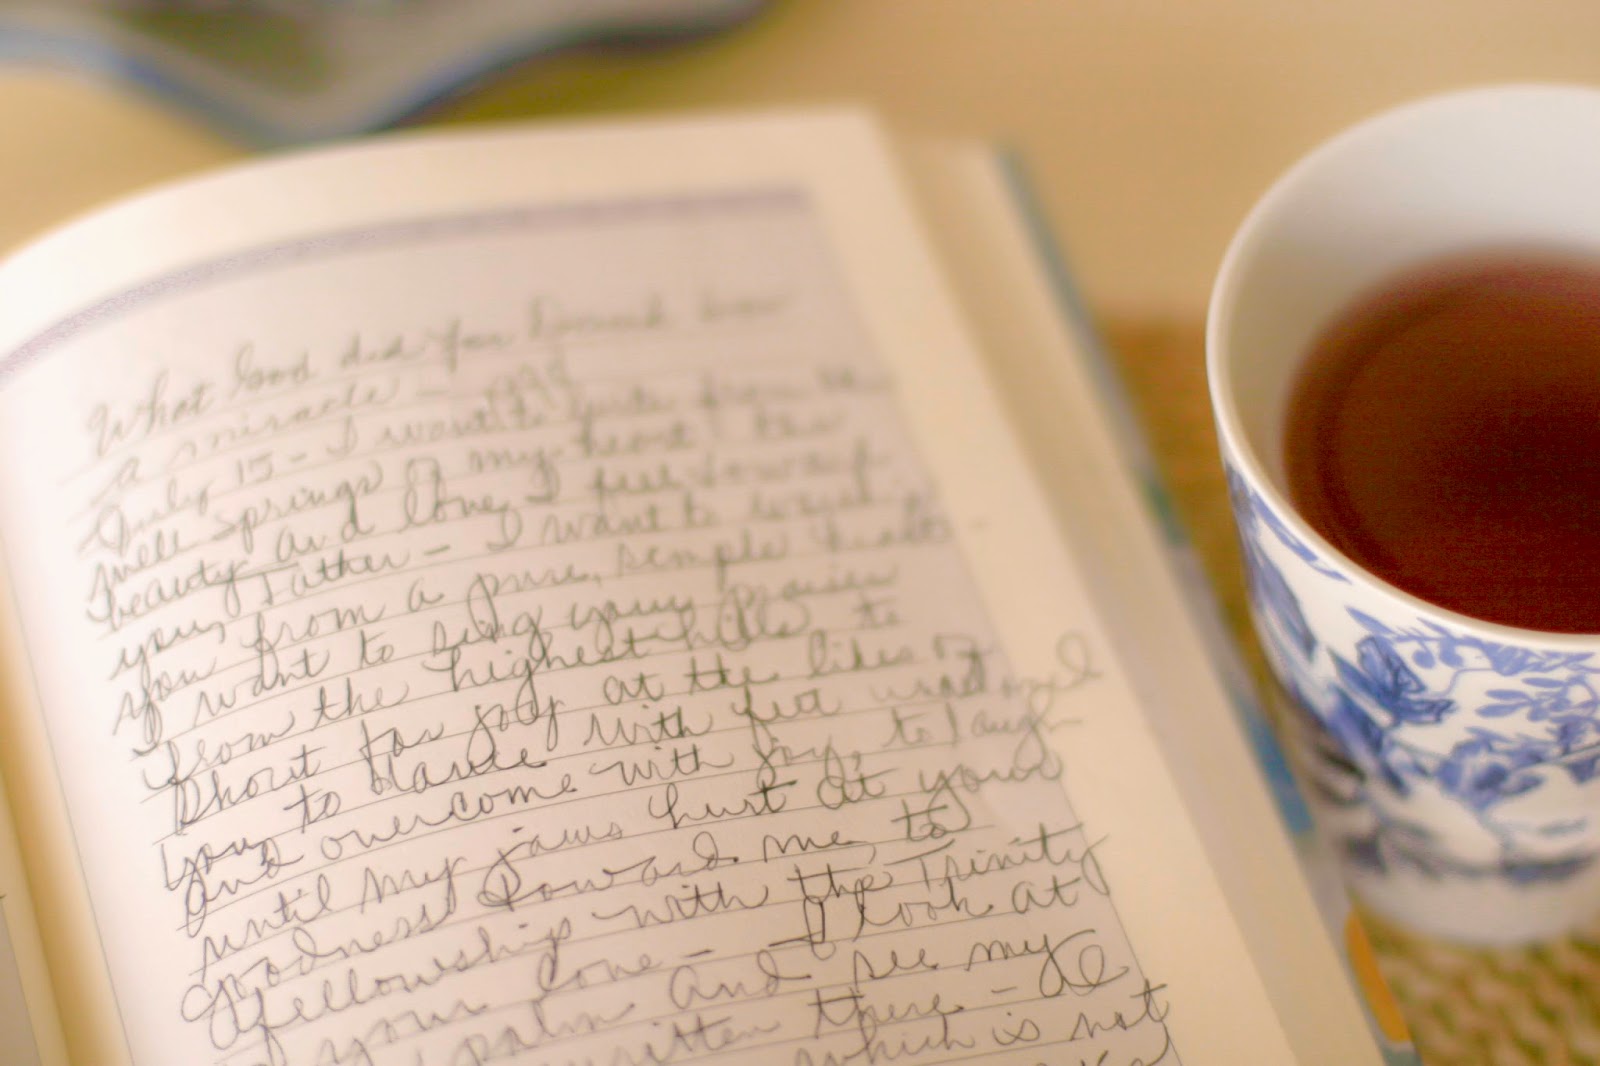 What Good did You
a miracle -
July 15 - I want to write from the
well springs of my heart the
beauty and love I feel toward
you, Father - I want to
you from a pure, simple
I want to sing your praises
from the highest hills to
shout for joy at the likes of
you to dance with feet and
and overcome with joy, to laugh
until my jaws hurt at your
goodness toward me, to
fellowship with the Trinity
your Love - I look at
palm and see my
written there - I
which is not